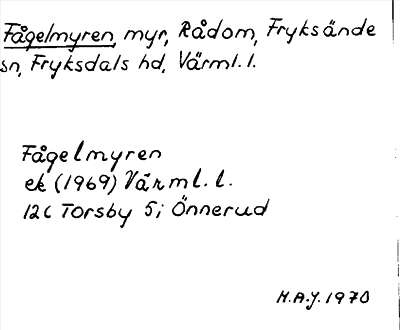 Fågelmyren, myr, Rådom, Fryksände
sn, Fryksdals hd, Värml. l.
Fågelmyren
ek (1969) Värml. l.
12c Torsby 5; Önnerud
H.A.J. 1970